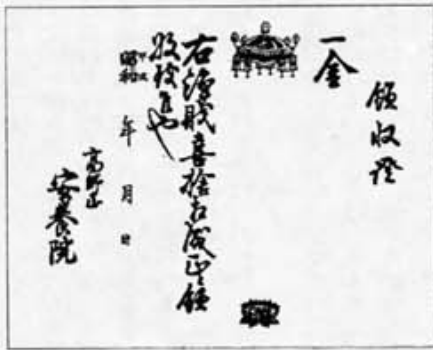 領収證
一金
右浄財喜捨相成正ニ領
収候也
昭和 年 月 日
高野山
安養院